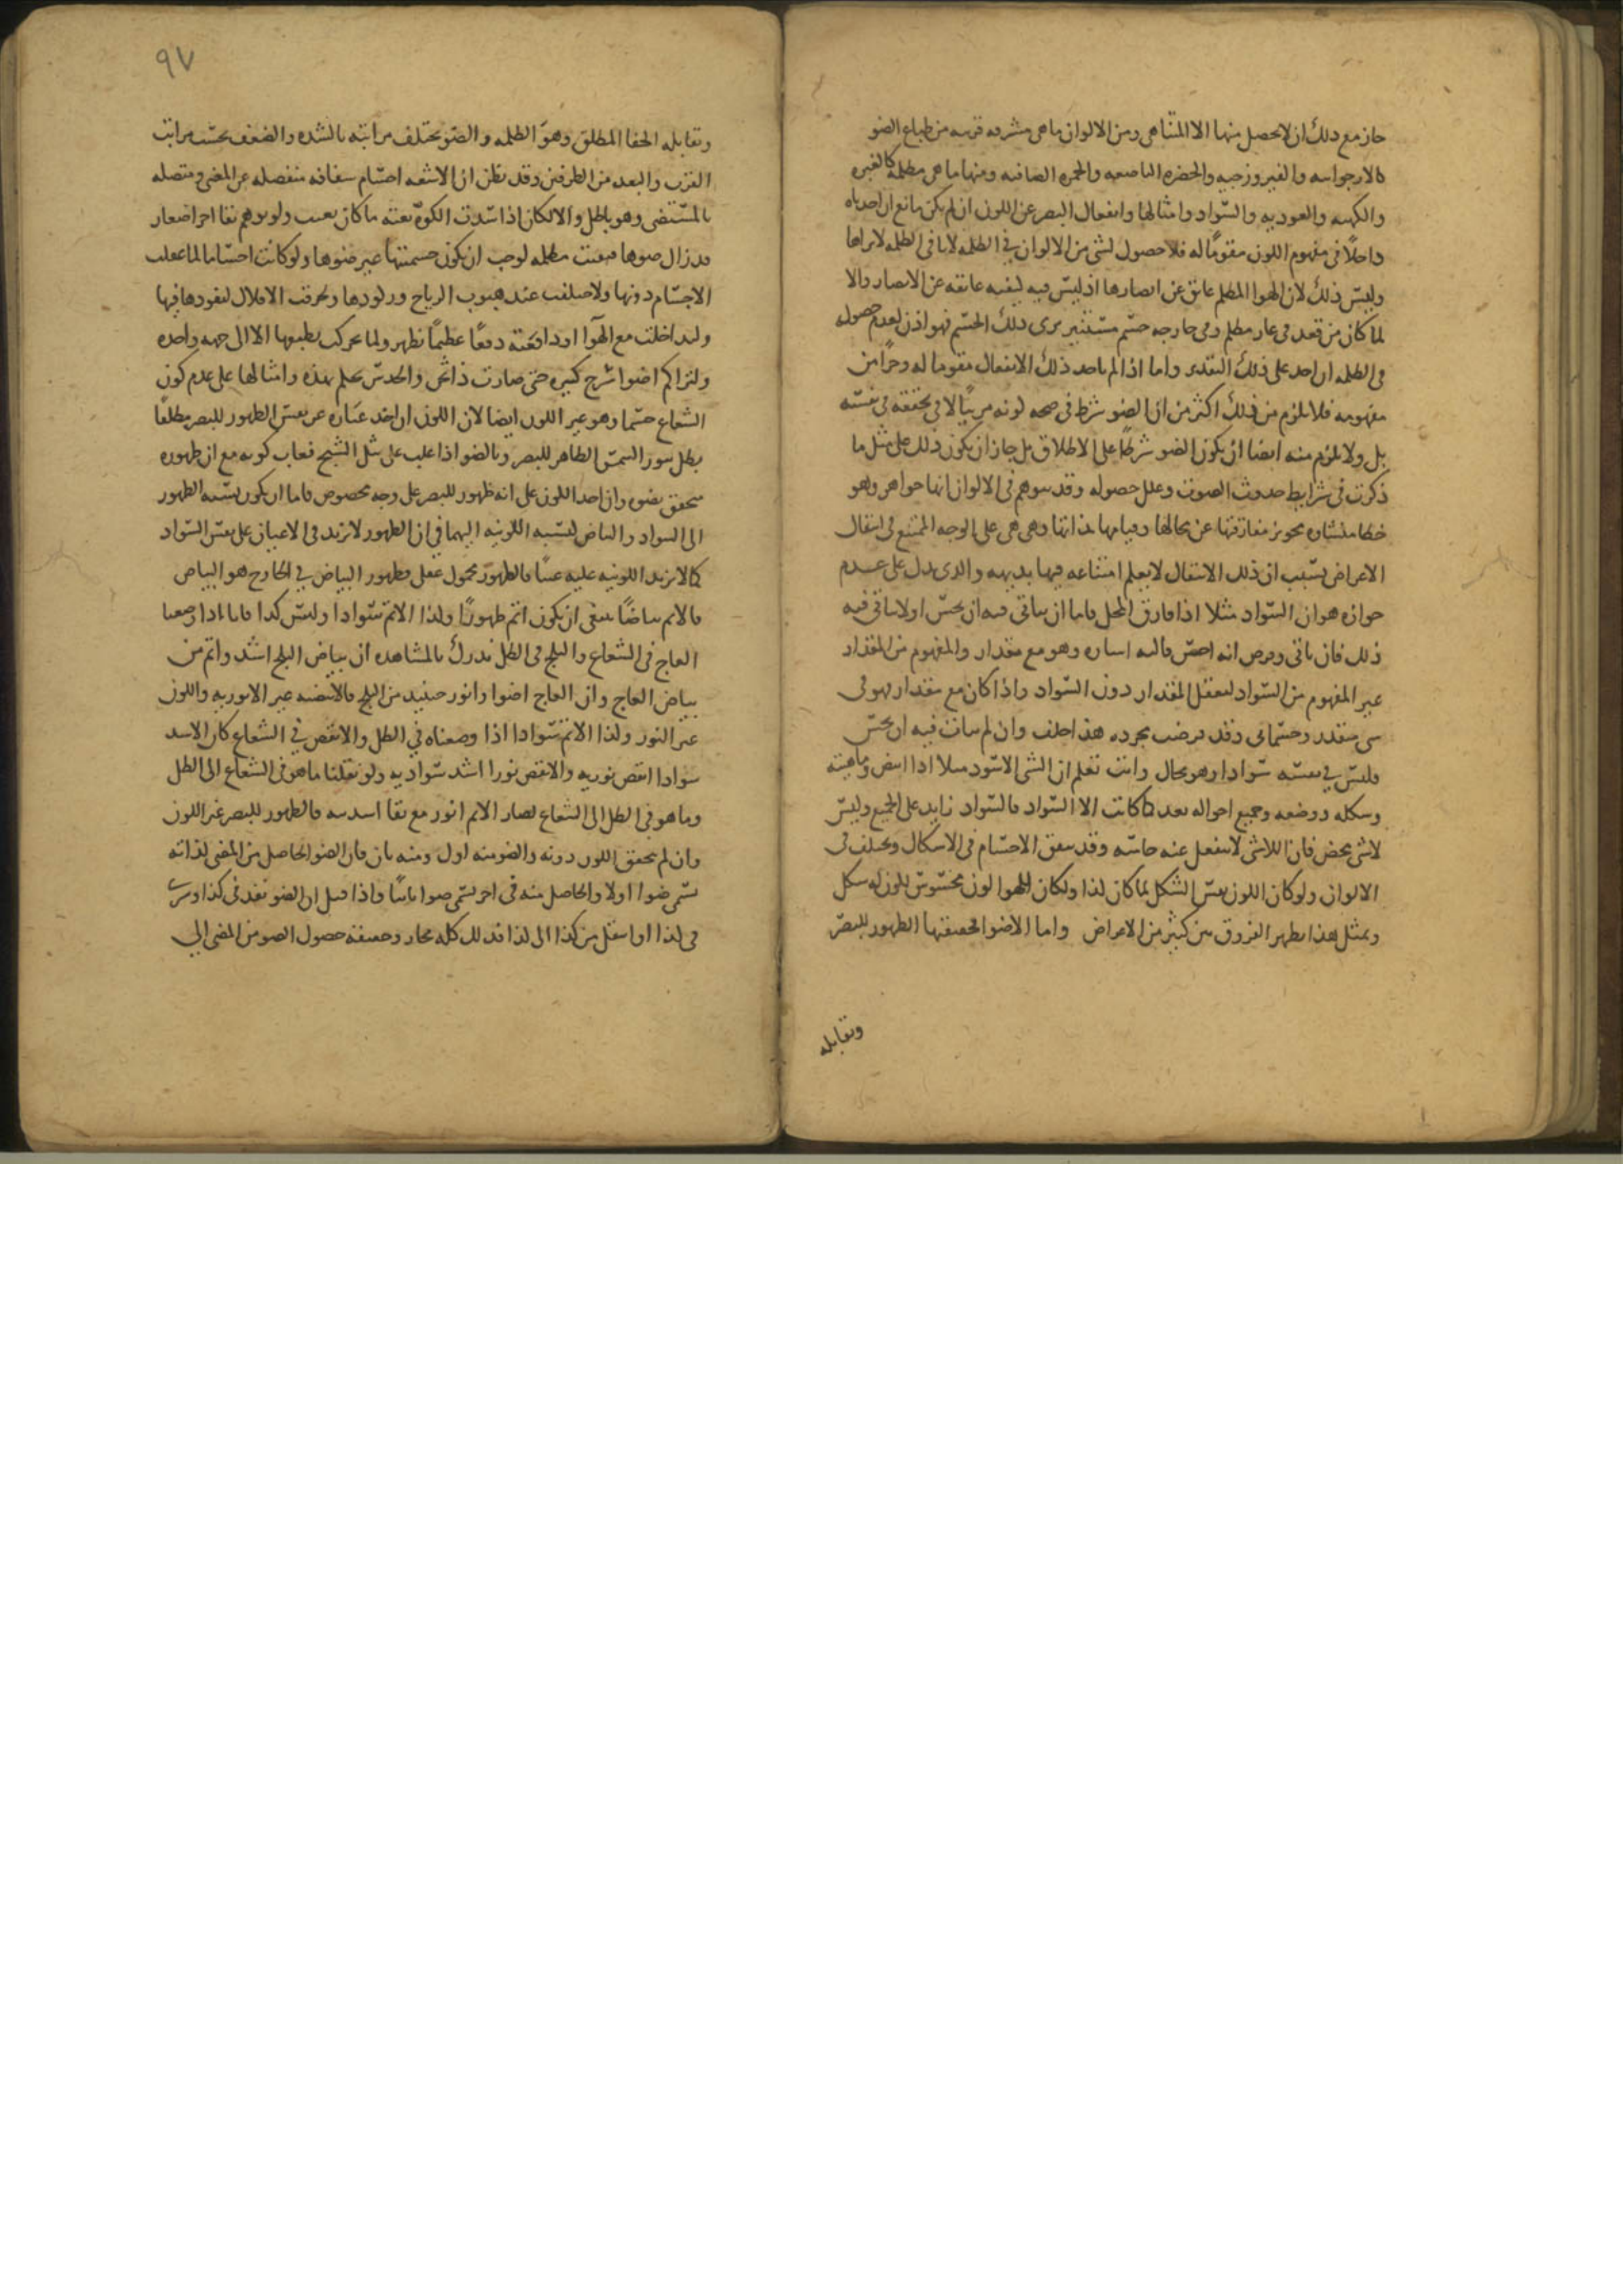 جاز مع ذلك ان لا يحصل منها الا المتناهى ومن الالوان ما هى مشرقه قريبه من طباع الضو
كالارجوانيه والفيروزجيه والخضره الناصعه والحمره الصافيه ومنها ما هى مظلمه كالغبره
والكهبه والعوديه والسواد وامثالها وانفعال البصر عن اللون ان لم يكن مانع ان اخذناه
داخلًا فى مفهوم اللون مقومًا له فلا حصول لشى من الالوان فى الظلمه لانا فى الظلمه لا نراها
وليس ذلك لان الهوا المظلم عائق عن ابصارها اذ ليس فيه كيفيه عائقه عن الابصار والا
لما كان من قعد فى غار مظلم وفى خارجه جسم مستنير يرى ذلك الجسم فهو اذن لعدم حصوله
فى الظلمه ان اخذ على ذلك التقدير واما اذا لم ياخذ ذلك الانفعال مقوما له وجزًا من
مفهومه فلا يلزم من ذلك اكثر من ان الضو شرط فى صحه كونه مرئيًا لا فى تحققه فى نفسه
بل ولا يلزم منه ايضا ان يكون الضو شرطًا على الاطلاق بل جاز ان يكون ذلك على مثل ما
ذكرت فى شرايط حدوث الصوت وعلل حصوله وقد يتوهم فى الالوان انها جواهر وهو
خطا منشاوه تجويز مفارقتها عن محالها وقيامها بذاتها وهى هى على الوجه الممتنع فى انتقال
الاعراض بسبب ان ذلك الانتقال لا يعلم امتناعه فيها بديهه والذى يدل على عدم
جوازه هو ان السواد مثلا اذا فارق المحل فاما ان يتاتى فيه ان يحس او لا يتاتى فيه
ذلك فان تاتى وفرض انه احس فاليه اشاره وهو مع مقدار والمفهوم من المقدار
غير المفهوم من السواد لتعقل المقدار دون السواد واذا كان مع مقدار فهو فى
شى متقدر وجسمانى وقد فرضت مجرده هذا خلف وان لم يتات فيه ان يحس
فليس فى نفسه سوادا وهو محال وانت تعلم ان الشى الاسود مثلا اذا ابيض وماهيته
وشكله ووضعه وجميع احواله بعد كما كانت الا السواد فالسواد زايد على الجميع وليس
لاشى محض فان اللاشى لا تنفعل عنه حاسه وقد يتفق الاجسام فى الاشكال ويختلف فى
الالوان ولو كان اللون نفس الشكل لما كان كذا ولكان للهوا لون محسوس لكون له شكل
وبمثل هذا يظهر الفروق بين كثير من الاعراض واما الاضوا فحقيقتها الظهور للبصر
ويقابله
٩٧
ويقابله الخفا المطلق وهو الظلمه والضو يختلف مراتبه بالشده والضعف بحسب مراتب
القرب والبعد من الطرفين وقد يظن ان الاشعه اجسام شفافه منفصله عن المضى ومتصله
بالمستضى وهو باطل والا لكان اذا سدت الكوه بغته ما كان يغيب ولو توهم بقا اجزا صغار
قد زال ضوها فبقيت مظلمه لوجب ان يكون جسميتها غير ضوها ولو كانت اجساما لما عقلت
الاجسام دونها ولاختلفت عند هبوب الرياح وركودها ولخرقت الافلاك لنفودها فيها
ولتداخلت مع الهوا او دافعته دفعًا عظيمًا يظهر ولما تحركت بطبعها الا الى جهه واحده
ولتراكم اضوا سرج كثيره حتى صارت ذا ثخن والحدس يحكم بهذه وامثالها على عدم كون
الشعاع جسما وهو غير اللون ايضا لان اللون ان اخذ عباره عن نفس الظهور للبصر مطلقًا
بطل بنور الشمس الظاهر للبصر وبالضو اذا غلب على مثل الشبح فغاب لونه مع ان ظهوره
متحقق بضوه وان اخذ اللون على انه ظهور للبصر على وجه مخصوص فاما ان يكون نسبه الظهور
الى السواد والبياض كنسبه اللونيه اليهما فى ان الظهور لا يزيد فى الاعيان على نفس السواد
كما لا تزيد اللونيه عليه عينًا فالظهور محمول عقلى فظهور البياض فى الخارج هو البياض
فالاتم بياضًا ينبغى ان يكون اتم ظهورًا وكذا الاتم سوادا وليس كذا فانا اذا وضعنا
العاج فى الشعاع والثلج فى الظل ندرك بالمشاهده ان بياض الثلج اشد واتم من
بياض العاج وان العاج اضوا وانور حينيد من الثلج فالابيضيه غير الانوريه واللون
غير النور وكذا الاتم سوادا اذا وضعناه فى الظل والانقص فى الشعاع كان الاشد
سوادا انقص نوريه والانقص نورا اشد سواديه ولو نقلنا ما هو فى الشعاع الى الظل
وما هو فى الظل الى الشعاع لصار الاتم انور مع بقا اشديته فالظهور للبصر غير اللون
وان لم يتحقق اللون دونه والضو منه اول ومنه ثان فان الضو الحاصل من المضى لذاته
يسمى ضوا اولا والحاصل منه فى اخر يسمى ضوا ثانيًا واذا قيل ان الضو نفد فى كذا وسرى
فى كذا او انتقل من كذا الى كذا فذلك كله مجاز وحقيقته حصول الضو من المضى الى